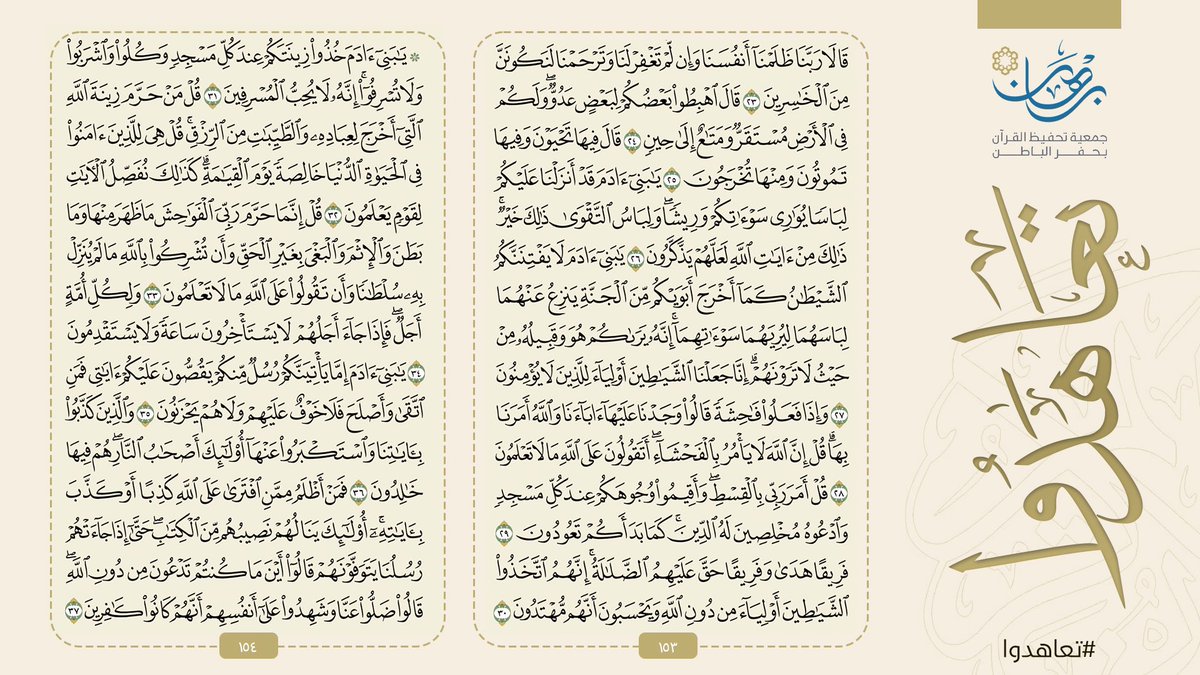 برهان
جمعية تحفيظ القرآن
بحفر الباطن
تعاهدوا
#تعاهدوا
قَالَا رَبَّنَا ظَلَمْنَآ أَنفُسَنَا وَإِن لَّمْ تَغْفِرْ لَنَا وَتَرْحَمْنَا لَنَكُونَنَّ
مِنَ ٱلْخَٰسِرِينَ ٢٣ قَالَ ٱهْبِطُوا۟ بَعْضُكُمْ لِبَعْضٍ عَدُوٌّ ۖ وَلَكُمْ
فِى ٱلْأَرْضِ مُسْتَقَرٌّ وَمَتَٰعٌ إِلَىٰ حِينٍ ٢٤ قَالَ فِيهَا تَحْيَوْنَ وَفِيهَا
تَمُوتُونَ وَمِنْهَا تُخْرَجُونَ ٢٥ يَٰبَنِىٓ ءَادَمَ قَدْ أَنزَلْنَا عَلَيْكُمْ
لِبَاسًا يُوَٰرِى سَوْءَٰتِكُمْ وَرِيشًا ۖ وَلِبَاسُ ٱلتَّقْوَىٰ ذَٰلِكَ خَيْرٌ ۚ
ذَٰلِكَ مِنْ ءَايَٰتِ ٱللَّهِ لَعَلَّهُمْ يَذَّكَّرُونَ ٢٦ يَٰبَنِىٓ ءَادَمَ لَا يَفْتِنَنَّكُمُ
ٱلشَّيْطَٰنُ كَمَآ أَخْرَجَ أَبَوَيْكُم مِّنَ ٱلْجَنَّةِ يَنزِعُ عَنْهُمَا
لِبَاسَهُمَا لِيُرِيَهُمَا سَوْءَٰتِهِمَآ ۗ إِنَّهُۥ يَرَىٰكُمْ هُوَ وَقَبِيلُهُۥ مِنْ
حَيْثُ لَا تَرَوْنَهُمْ ۗ إِنَّا جَعَلْنَا ٱلشَّيَٰطِينَ أَوْلِيَآءَ لِلَّذِينَ لَا يُؤْمِنُونَ
٢٧ وَإِذَا فَعَلُوا۟ فَٰحِشَةً قَالُوا۟ وَجَدْنَا عَلَيْهَآ ءَابَآءَنَا وَٱللَّهُ أَمَرَنَا
بِهَا ۗ قُلْ إِنَّ ٱللَّهَ لَا يَأْمُرُ بِٱلْفَحْشَآءِ ۖ أَتَقُولُونَ عَلَى ٱللَّهِ مَا لَا تَعْلَمُونَ
٢٨ قُلْ أَمَرَ رَبِّى بِٱلْقِسْطِ ۖ وَأَقِيمُوا۟ وُجُوهَكُمْ عِندَ كُلِّ مَسْجِدٍ
وَٱدْعُوهُ مُخْلِصِينَ لَهُ ٱلدِّينَ ۚ كَمَا بَدَأَكُمْ تَعُودُونَ ٢٩
فَرِيقًا هَدَىٰ وَفَرِيقًا حَقَّ عَلَيْهِمُ ٱلضَّلَٰلَةُ ۗ إِنَّهُمُ ٱتَّخَذُوا۟
ٱلشَّيَٰطِينَ أَوْلِيَآءَ مِن دُونِ ٱللَّهِ وَيَحْسَبُونَ أَنَّهُم مُّهْتَدُونَ ٣٠
١٥٣
۞ يَٰبَنِىٓ ءَادَمَ خُذُوا۟ زِينَتَكُمْ عِندَ كُلِّ مَسْجِدٍ وَكُلُوا۟ وَٱشْرَبُوا۟
وَلَا تُسْرِفُوٓا۟ ۚ إِنَّهُۥ لَا يُحِبُّ ٱلْمُسْرِفِينَ ٣١ قُلْ مَنْ حَرَّمَ زِينَةَ ٱللَّهِ
ٱلَّتِىٓ أَخْرَجَ لِعِبَادِهِۦ وَٱلطَّيِّبَٰتِ مِنَ ٱلرِّزْقِ ۚ قُلْ هِىَ لِلَّذِينَ ءَامَنُوا۟
فِى ٱلْحَيَوٰةِ ٱلدُّنْيَا خَالِصَةً يَوْمَ ٱلْقِيَٰمَةِ ۗ كَذَٰلِكَ نُفَصِّلُ ٱلْءَايَٰتِ
لِقَوْمٍ يَعْلَمُونَ ٣٢ قُلْ إِنَّمَا حَرَّمَ رَبِّىَ ٱلْفَوَٰحِشَ مَا ظَهَرَ مِنْهَا وَمَا
بَطَنَ وَٱلْإِثْمَ وَٱلْبَغْىَ بِغَيْرِ ٱلْحَقِّ وَأَن تُشْرِكُوا۟ بِٱللَّهِ مَا لَمْ يُنَزِّلْ
بِهِۦ سُلْطَٰنًا وَأَن تَقُولُوا۟ عَلَى ٱللَّهِ مَا لَا تَعْلَمُونَ ٣٣ وَلِكُلِّ أُمَّةٍ
أَجَلٌ ۖ فَإِذَا جَآءَ أَجَلُهُمْ لَا يَسْتَأْخِرُونَ سَاعَةً وَلَا يَسْتَقْدِمُونَ
٣٤ يَٰبَنِىٓ ءَادَمَ إِمَّا يَأْتِيَنَّكُمْ رُسُلٌ مِّنكُمْ يَقُصُّونَ عَلَيْكُمْ ءَايَٰتِى فَمَنِ
ٱتَّقَىٰ وَأَصْلَحَ فَلَا خَوْفٌ عَلَيْهِمْ وَلَا هُمْ يَحْزَنُونَ ٣٥ وَٱلَّذِينَ كَذَّبُوا۟
بِـَٔايَٰتِنَا وَٱسْتَكْبَرُوا۟ عَنْهَآ أُو۟لَٰٓئِكَ أَصْحَٰبُ ٱلنَّارِ ۖ هُمْ فِيهَا
خَٰلِدُونَ ٣٦ فَمَنْ أَظْلَمُ مِمَّنِ ٱفْتَرَىٰ عَلَى ٱللَّهِ كَذِبًا أَوْ كَذَّبَ
بِـَٔايَٰتِهِۦٓ ۚ أُو۟لَٰٓئِكَ يَنَالُهُمْ نَصِيبُهُم مِّنَ ٱلْكِتَٰبِ ۖ حَتَّىٰٓ إِذَا جَآءَتْهُمْ
رُسُلُنَا يَتَوَفَّوْنَهُمْ قَالُوٓا۟ أَيْنَ مَا كُنتُمْ تَدْعُونَ مِن دُونِ ٱللَّهِ ۖ
قَالُوا۟ ضَلُّوا۟ عَنَّا وَشَهِدُوا۟ عَلَىٰٓ أَنفُسِهِمْ أَنَّهُمْ كَانُوا۟ كَٰفِرِينَ ٣٧
١٥٤